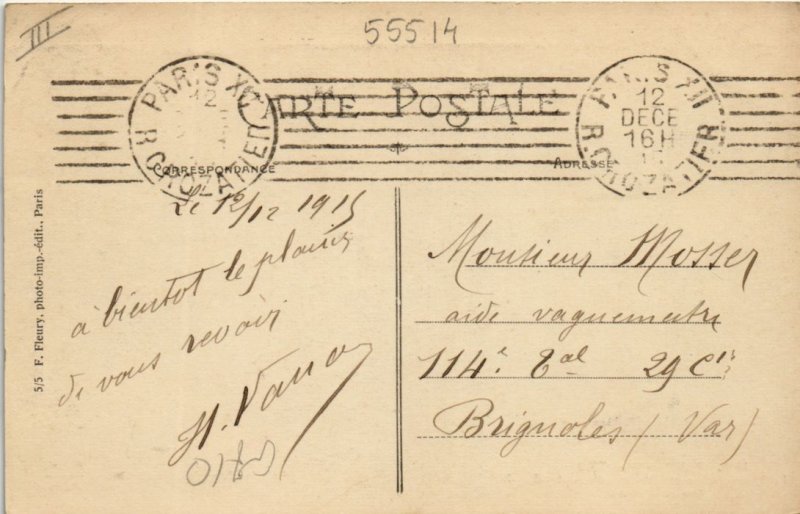 III
55514
PARIS XII
12
R. CROZATIER
CARTE POSTALE
PARIS XII
12
DECE
16H
15
R. CROZATIER
CORRESPONDANCE
ADRESSE
Le 12/12 1915
à bientot le plaisir
de vous revoir
H.
Monsieur Mosser
aide vaguemestre
114e Tal 29 Cie
Brignoles (Var)
5/5 F. Fleury, photo-imp.-édit., Paris